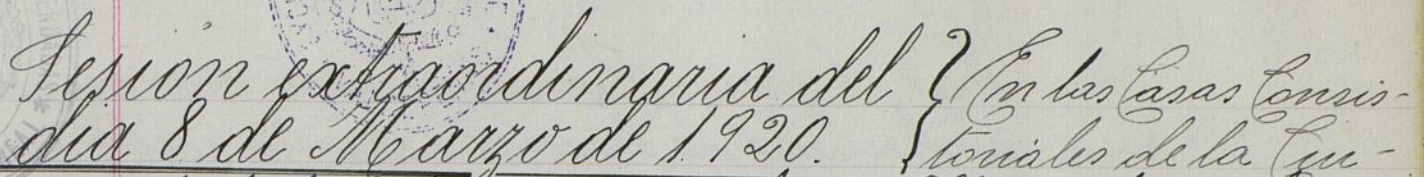 Sesión extraordinaria del
día 8 de Marzo de 1920.
En las Casas Consis-
toriales de la Ciu-